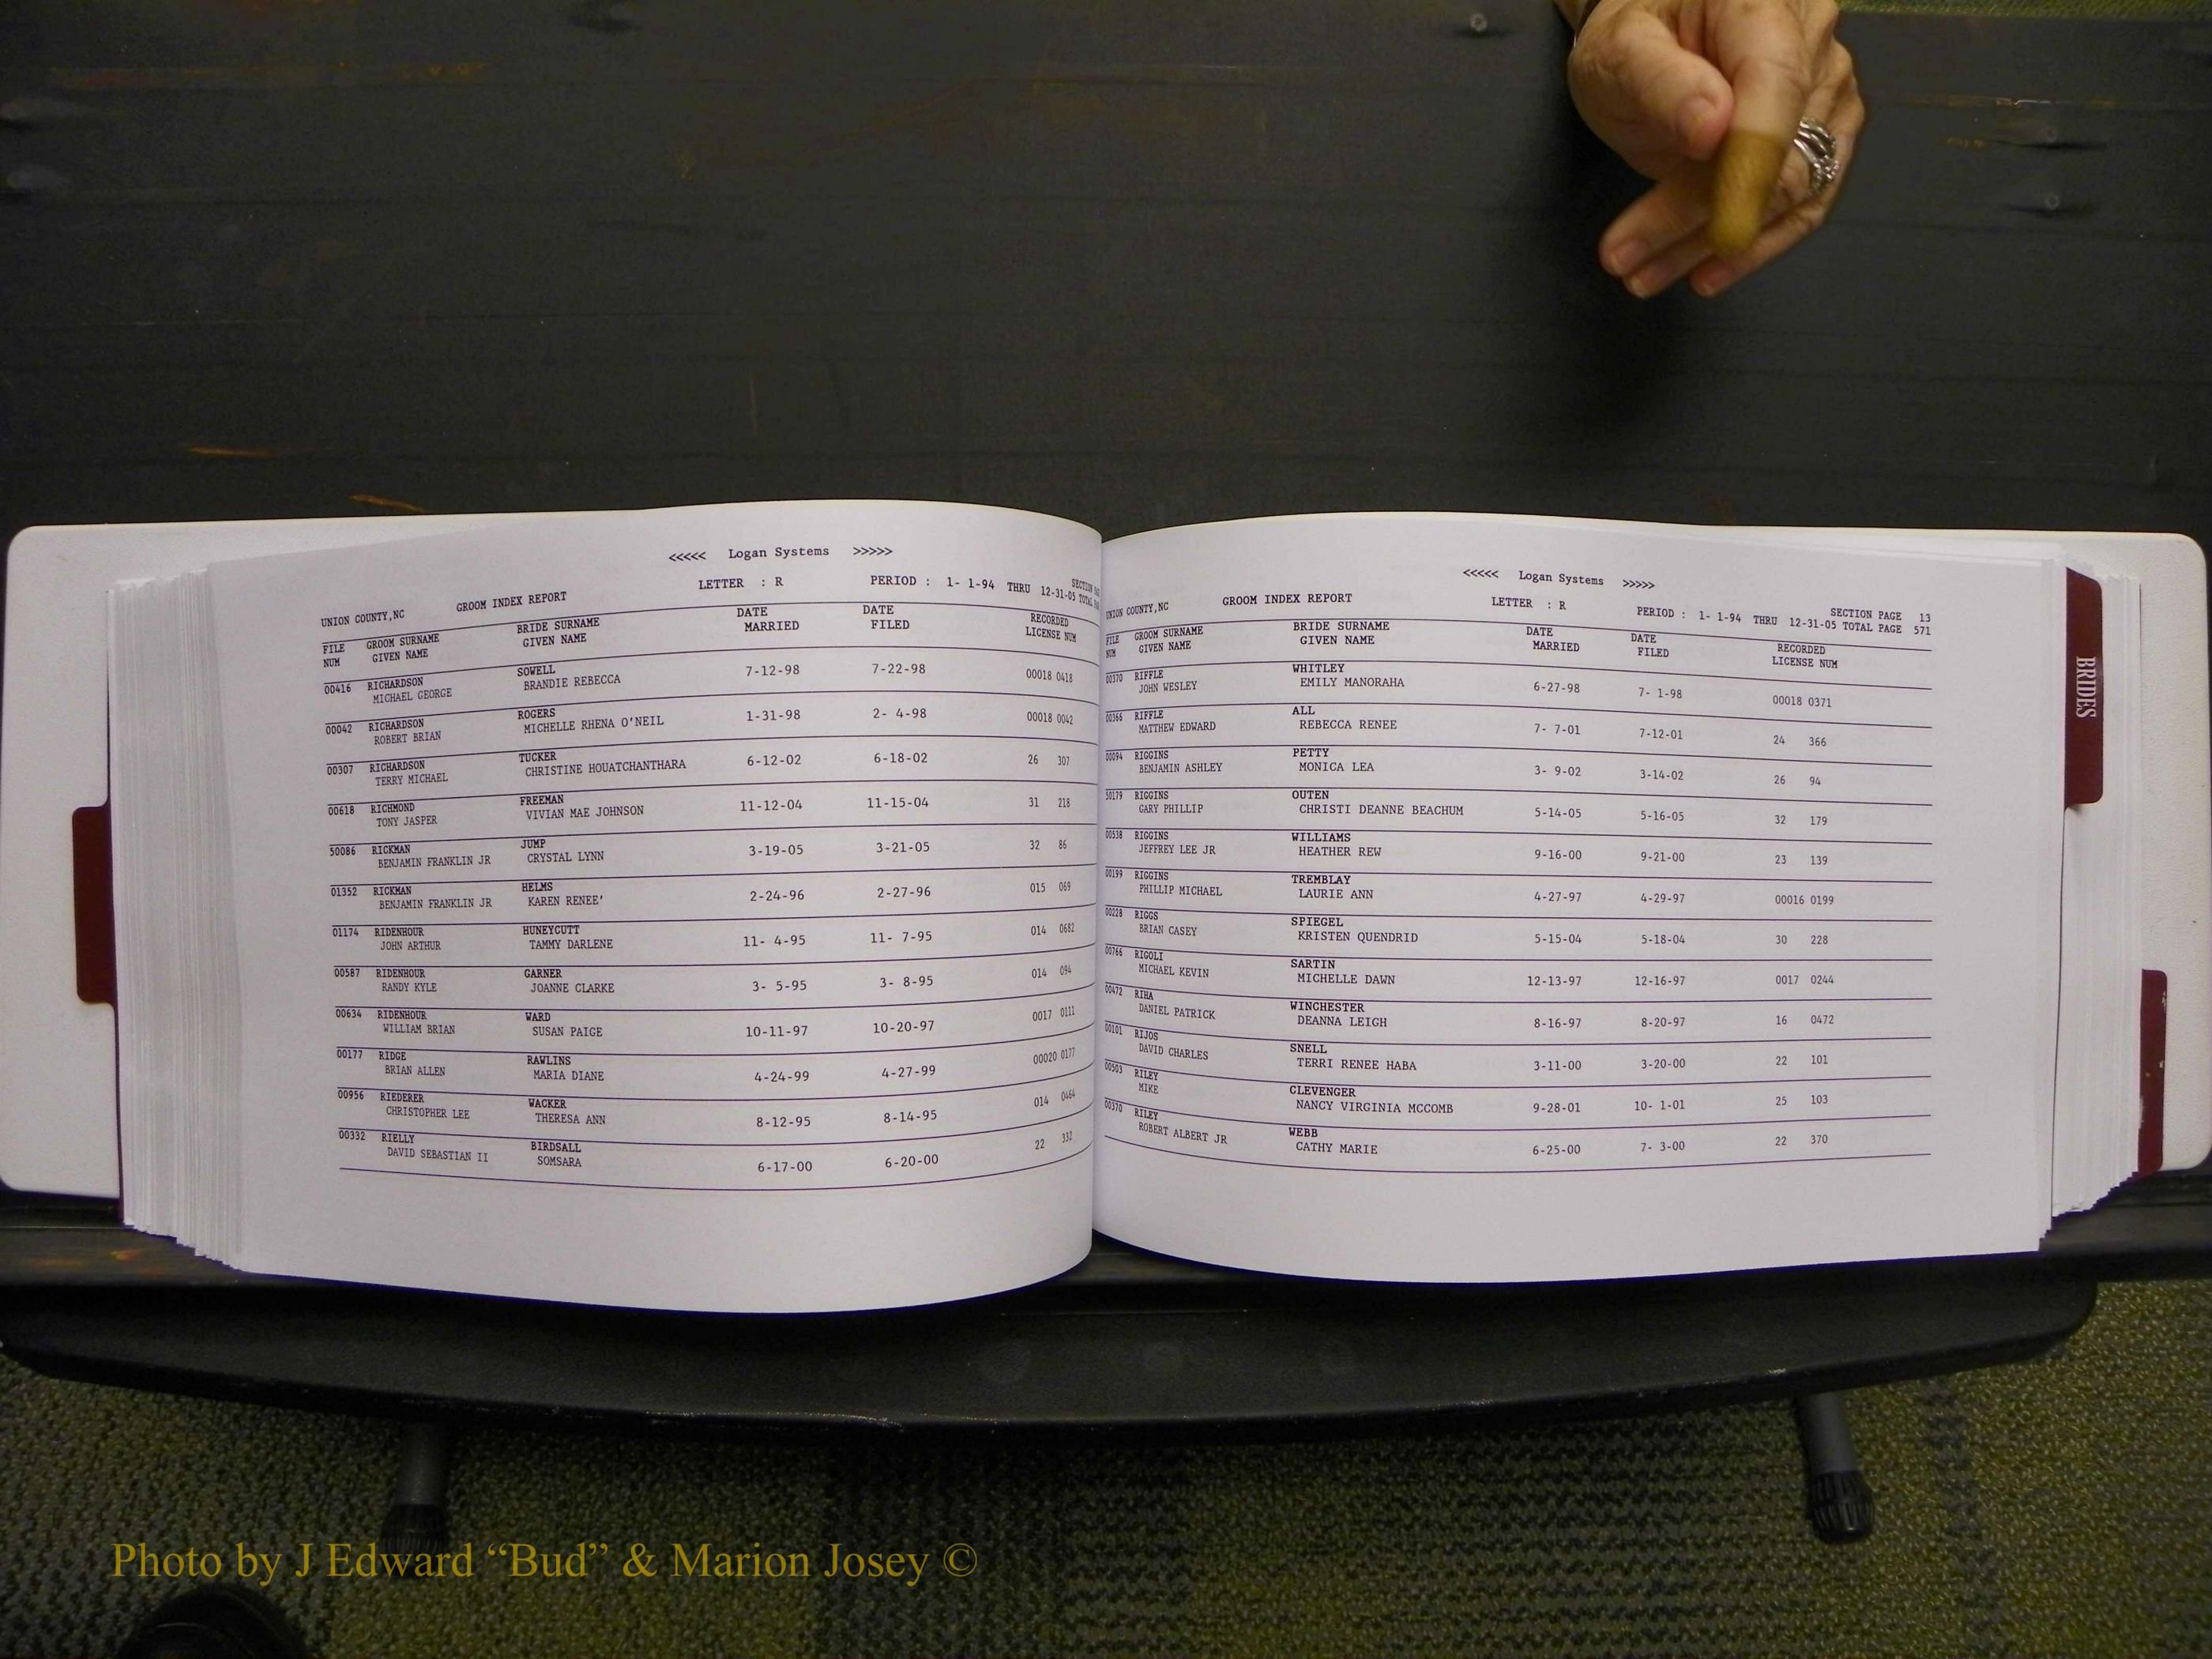 <<<<< Logan Systems >>>>>
UNION COUNTY,NC GROOM INDEX REPORT LETTER : R PERIOD : 1- 1-94 THRU 12-31-05 SECTION TOTAL
FILE GROOM SURNAME BRIDE SURNAME DATE DATE RECORDED
NUM GIVEN NAME GIVEN NAME MARRIED FILED LICENSE NUM
00416 RICHARDSON SOWELL 7-12-98 7-22-98 00018 0418
MICHAEL GEORGE BRANDIE REBECCA
00042 RICHARDSON ROGERS 1-31-98 2- 4-98 00018 0042
ROBERT BRIAN MICHELLE RHENA O'NEIL
00307 RICHARDSON TUCKER 6-12-02 6-18-02 26 307
TERRY MICHAEL CHRISTINE HOUATCHANTHARA
00618 RICHMOND FREEMAN 11-12-04 11-15-04 31 218
TONY JASPER VIVIAN MAE JOHNSON
50086 RICKMAN JUMP 3-19-05 3-21-05 32 86
BENJAMIN FRANKLIN JR CRYSTAL LYNN
01352 RICKMAN HELMS 2-24-96 2-27-96 015 069
BENJAMIN FRANKLIN JR KAREN RENEE'
01174 RIDENHOUR HUNEYCUTT 11- 4-95 11- 7-95 014 0682
JOHN ARTHUR TAMMY DARLENE
00587 RIDENHOUR GARNER 3- 5-95 3- 8-95 014 094
RANDY KYLE JOANNE CLARKE
00634 RIDENHOUR WARD 10-11-97 10-20-97 0017 0111
WILLIAM BRIAN SUSAN PAIGE
00177 RIDGE RAWLINS 4-24-99 4-27-99 00020 0177
BRIAN ALLEN MARIA DIANE
00956 RIEDERER WACKER 8-12-95 8-14-95 014 0464
CHRISTOPHER LEE THERESA ANN
00332 RIELLY BIRDSALL 6-17-00 6-20-00 22 332
DAVID SEBASTIAN II SOMSARA
<<<<< Logan Systems >>>>>
UNION COUNTY,NC GROOM INDEX REPORT LETTER : R PERIOD : 1- 1-94 THRU 12-31-05 SECTION PAGE 13
TOTAL PAGE 571
FILE GROOM SURNAME BRIDE SURNAME DATE DATE RECORDED
NUM GIVEN NAME GIVEN NAME MARRIED FILED LICENSE NUM
00370 RIFFLE WHITLEY 6-27-98 7- 1-98 00018 0371
JOHN WESLEY EMILY MANORAHA
00366 RIFFLE ALL 7- 7-01 7-12-01 24 366
MATTHEW EDWARD REBECCA RENEE
00094 RIGGINS PETTY 3- 9-02 3-14-02 26 94
BENJAMIN ASHLEY MONICA LEA
50179 RIGGINS OUTEN 5-14-05 5-16-05 32 179
GARY PHILLIP CHRISTI DEANNE BEACHUM
00538 RIGGINS WILLIAMS 9-16-00 9-21-00 23 139
JEFFREY LEE JR HEATHER REW
00199 RIGGINS TREMBLAY 4-27-97 4-29-97 00016 0199
PHILLIP MICHAEL LAURIE ANN
00228 RIGGS SPIEGEL 5-15-04 5-18-04 30 228
BRIAN CASEY KRISTEN QUENDRID
00766 RIGOLI SARTIN 12-13-97 12-16-97 0017 0244
MICHAEL KEVIN MICHELLE DAWN
00472 RIHA WINCHESTER 8-16-97 8-20-97 16 0472
DANIEL PATRICK DEANNA LEIGH
00101 RIJOS SNELL 3-11-00 3-20-00 22 101
DAVID CHARLES TERRI RENEE HABA
00503 RILEY CLEVENGER 9-28-01 10- 1-01 25 103
MIKE NANCY VIRGINIA MCCOMB
00370 RILEY WEBB 6-25-00 7- 3-00 22 370
ROBERT ALBERT JR CATHY MARIE
BRIDES
Photo by J Edward “Bud” & Marion Josey ©